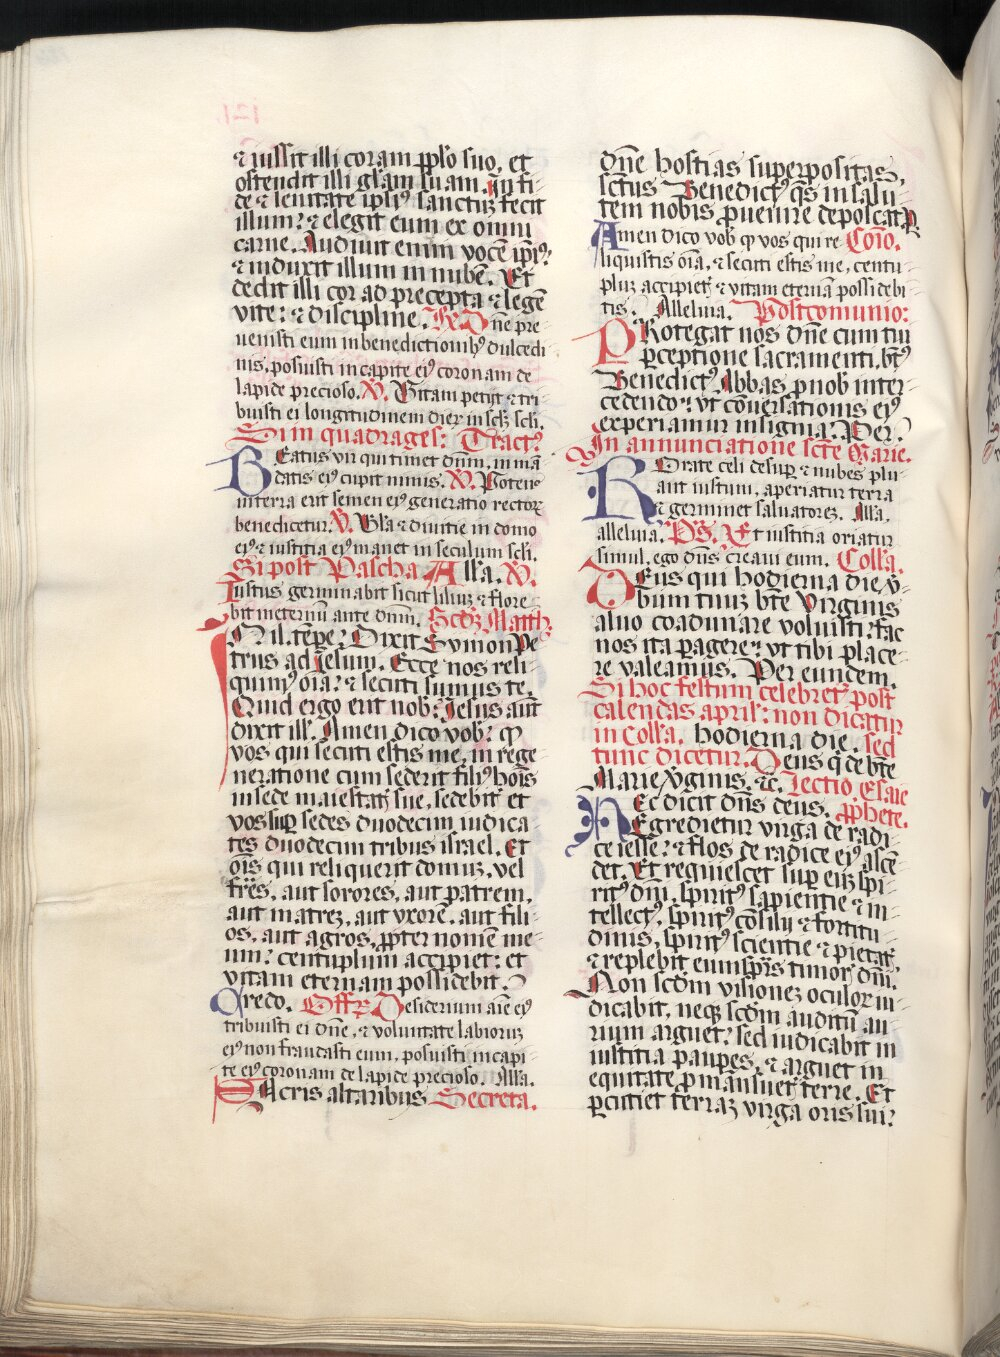 ⁊ iussit illi coram pplo suo, et
ostendit illi gl̄am suam. In fi-
de ⁊ lenitate ipsiꝰ sanctuꝫ fecit
illum: ⁊ elegit eum ex omni
carne. Audiuit enim vocē ipiꝰ:
⁊ induxit illum in nubē. Et
dedit illi cor ad precepta ⁊ legē
vite: ⁊ discipline. Re. Dn̄e pre-
uenisti eum in benedictionibꝰ dulcedi-
nis, posuisti in capite eiꝰ coronam de
lapide precioso. V. Vitam petijt ⁊ tri-
buisti ei longitudinem dieꝝ in scl̄ꝫ scl̄i.
Si in quadrages: Tractꝰ
Beatus vir qui timet dn̄m, in mā
datis eiꝰ cupit nimis. V. Potens
in terra erit semen eiꝰ generatio rectoꝝ
benedicetur. V. Gl̄a ⁊ diuitie in domo
eiꝰ ⁊ iustitia eiꝰ manet in seculum scl̄i.
Si post Pascha All̄a. V.
Iustus germinabit sicut liliuꝫ ⁊ flore-
bit ineternū ante dn̄m. Scd̄ꝫ Matth.
IN il. tēpe: Dixit Symon Pe
trus ad iesum. Ecce nos reli-
quimꝰ oīa: ⁊ secuti sumus te.
Quid ergo erit nob: Iesus aut̄
dixit ill'. Amen dico vob: qꝫ
vos qui secuti estis me, in rege
neratione cum sederit filiꝰ hoīs
in sede maiestatꝭ sue, sedebitꝭ et
vos suꝑ sedes duodecim iudica
tes duodecim tribus israel. Et
oīs qui reliquerit domuꝫ, vel
fr̄es, aut sorores, aut patrem,
aut matreꝫ, aut vxorē, aut fili-
os, aut agros, ꝓpter nomen me-
um: centuplum accipiet: et
vitam eternam possidebit.
Credo. Offꝝ Desiderium aīe eiꝰ
tribuisti ei dn̄e, ⁊ voluntate labioruꝫ
eiꝰ non fraudasti eum, posuisti in capi-
te eiꝰ coronam de lapide precioso. All̄a.
SAcris altaribus Secreta.
dn̄e hostias superpositas,
sc̄tus Benedictꝰ qs̄ in salu-
tem nobis ꝓuenire deposcatꝝ
Amen dico vob̄ qꝫ vos qui re Cōio.
liquistis oīa, ⁊ secuti estis me, centu-
pluꝫ accipietꝭ ⁊ vitam eternā possidebi-
tis. Alleluia. Postcomunio:
PRotegat nos dn̄e cum tui
ꝑceptione sacramenti. bt̄ꝰ
Benedictꝰ Abbas ꝓ nob inter-
cedendo: vt cōuersationis eiꝰ
experiamur insignia: Per.
In annunciatione scte Marie.
ROrate celi desuꝑ ⁊ nubes plu-
ant iustum, aperiatur terra
⁊ germinet saluatoreꝫ. All̄a,
alleluia. Ps̄. Et iustitia oriatur
simul, ego dn̄s creaui eum. Coll̄a.
DEus qui hodierna die ṽ-
bum tuuꝫ bt̄e virginis
aluo coadunare voluisti: fac
nos ita pagere: vt tibi place-
re valeamus. Per eundem.
Si hoc festum celebretꝰ post
calendas april: non dicatur
in Coll̄a. hodierna die. sed
tunc dicetur. Deus q̄ de bt̄e
Marie ṽginis ⁊c. Lectio Esaie
HEc dicit dn̄s deus. ꝓphete.
Egredietur virga de radi-
ce iesse: ⁊ flos de radice eiꝰ ascē-
det. Et requiescet suꝑ euꝫ spi-
ritꝰ dn̄i, spiritꝰ sapientie ⁊ in-
tellectꝰ, spiritꝰ cōsilij ⁊ fortitu-
dinis, spiritꝰ scientie ⁊ pietatꝭ,
⁊ replebit eum spūs timorꝭ dn̄i.
Non scd̄m visioneꝫ oculoꝝ iu-
dicabit, neqꝫ scd̄m auditū au-
rium arguet: sed iudicabit in
iustitia pauꝑes, ⁊ arguet in
equitate ꝓ mansuetꝭ terre. Et
ꝑcutiet terraꝫ virga oris sui: